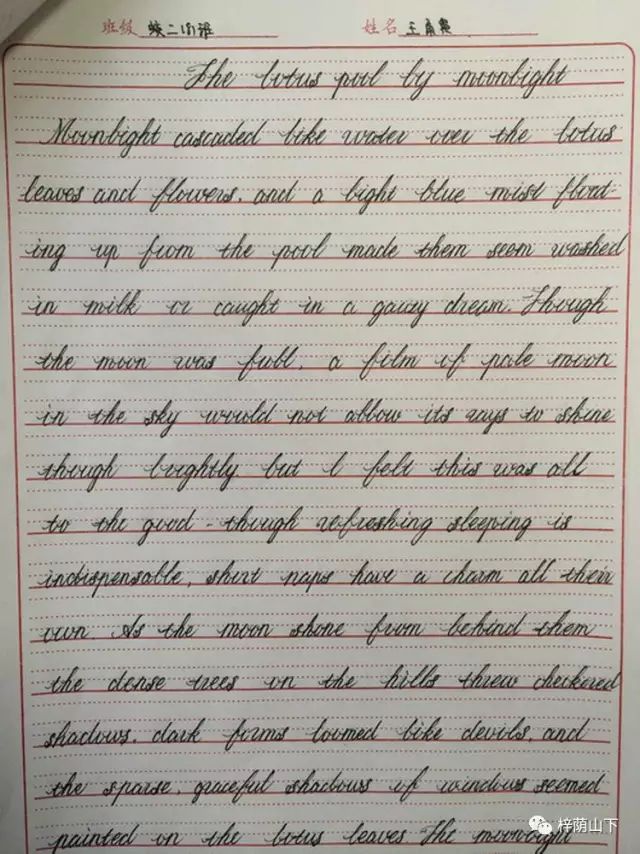 班级 姓名 王
The lotus pool by moonlight
Moonlight cascaded like water over the lotus
leaves and flowers. and a light blue mist float-
ing up from the pool made them seem washed
in milk or caught in a gauzy dream. Though
the moon was full, a film of pale moon
in the sky would not allow its rays to shine
though brightly. but I felt this was all
to the good - though refreshing sleeping is
indispensable, short naps have a charm all their
own. As the moon shone from behind them
the dense trees on the hills threw checkered
shadows. dark forms loomed like devils, and
the sparse, graceful shadows of windows seemed
painted on the lotus leaves. The moonlight
梓荫山下